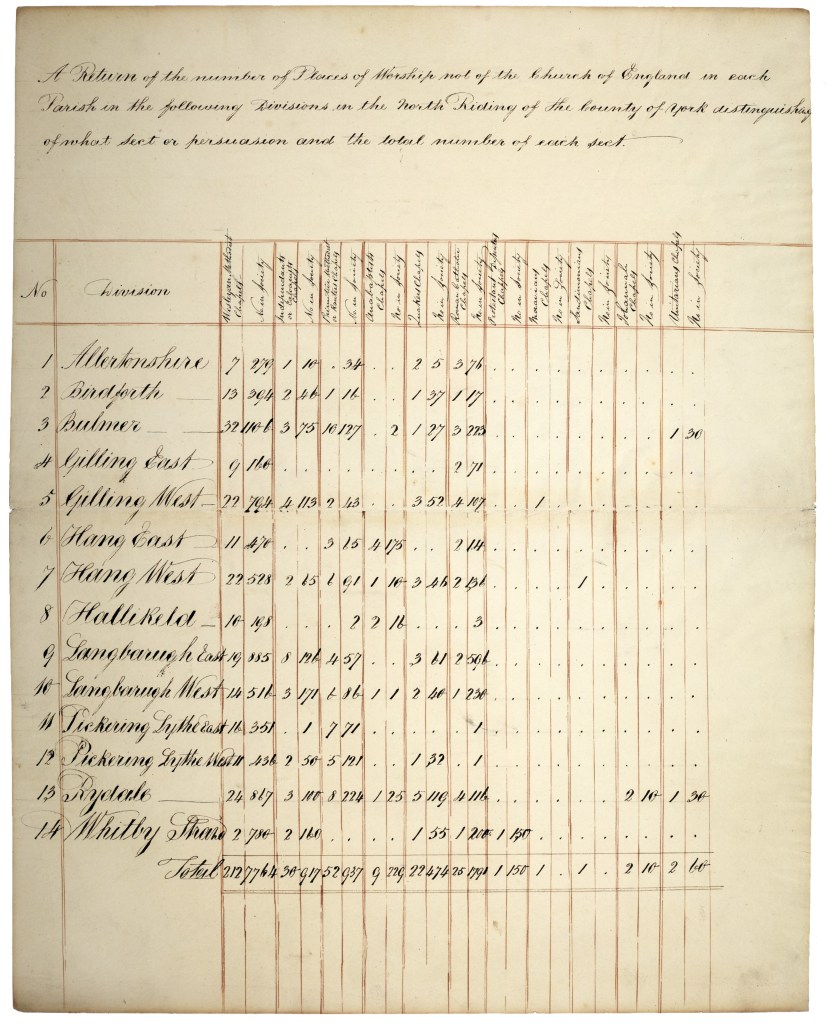 A Return of the number of Places of Worship not of the Church of England in each
Parish in the following Divisions in the North Riding of the County of York distinguishing
of what sect or persuasion and the total number of each sect.
No Division Wesleyan Methodist Chapels No in Society Independants or Calvanists Chapels No in Society Primitive Methodist or Ranters Chapels No in Society Anabaptists Chapels No in Society Quakers Chapels No in Society Roman Catholics Chapels No in Society Chapels No in Society Chapels No in Society Sandimonians Chapels No in Society Johannah Chapels No in Society Unitarians Chapels No in Society
1 Allertonshire 7 279 1 10 . 34 . . 2 5 3 76 . . . . . . . . . .
2 Birdforth 13 394 2 46 1 16 . . 1 37 1 17 . . . . . . . . . .
3 Bulmer 32 1106 3 75 10 127 . 2 1 27 3 223 . . . . . . . . 1 30
4 Gilling East 9 160 . . . . . . . . 2 71 . . . . . . . . . .
5 Gilling West 22 794 4 113 2 43 . . 3 52 4 107 . . 1 . . . . . . .
6 Hang East 11 470 . . 3 65 4 175 . . 2 14 . . . . . . . . . .
7 Hang West 22 528 2 65 6 91 1 10 3 46 2 136 . . . . 1 . . . . .
8 Hallikeld 10 198 . . . 2 2 16 . . . 3 . . . . . . . . . .
9 Langbarugh East 19 885 8 126 4 57 . . 3 61 2 596 . . . . . . . . . .
10 Langbarugh West 14 516 3 171 6 86 1 1 2 40 1 230 . . . . . . . . . .
11 Pickering Lythe East 16 351 . 1 7 71 . . . . . 1 . . . . . . . . . .
12 Pickering Lythe West 11 436 2 50 5 121 . . 1 32 . 1 . . . . . . . . . .
13 Rydale 24 867 3 100 8 224 1 25 5 119 4 116 . . . . . . 2 10 1 30
14 Whitby Strand 2 780 2 160 . . . . 1 55 1 200 1 150 . . . . . . . .
Total 212 7764 30 917 52 937 9 229 22 474 25 1791 1 150 1 . 1 . 2 10 2 60